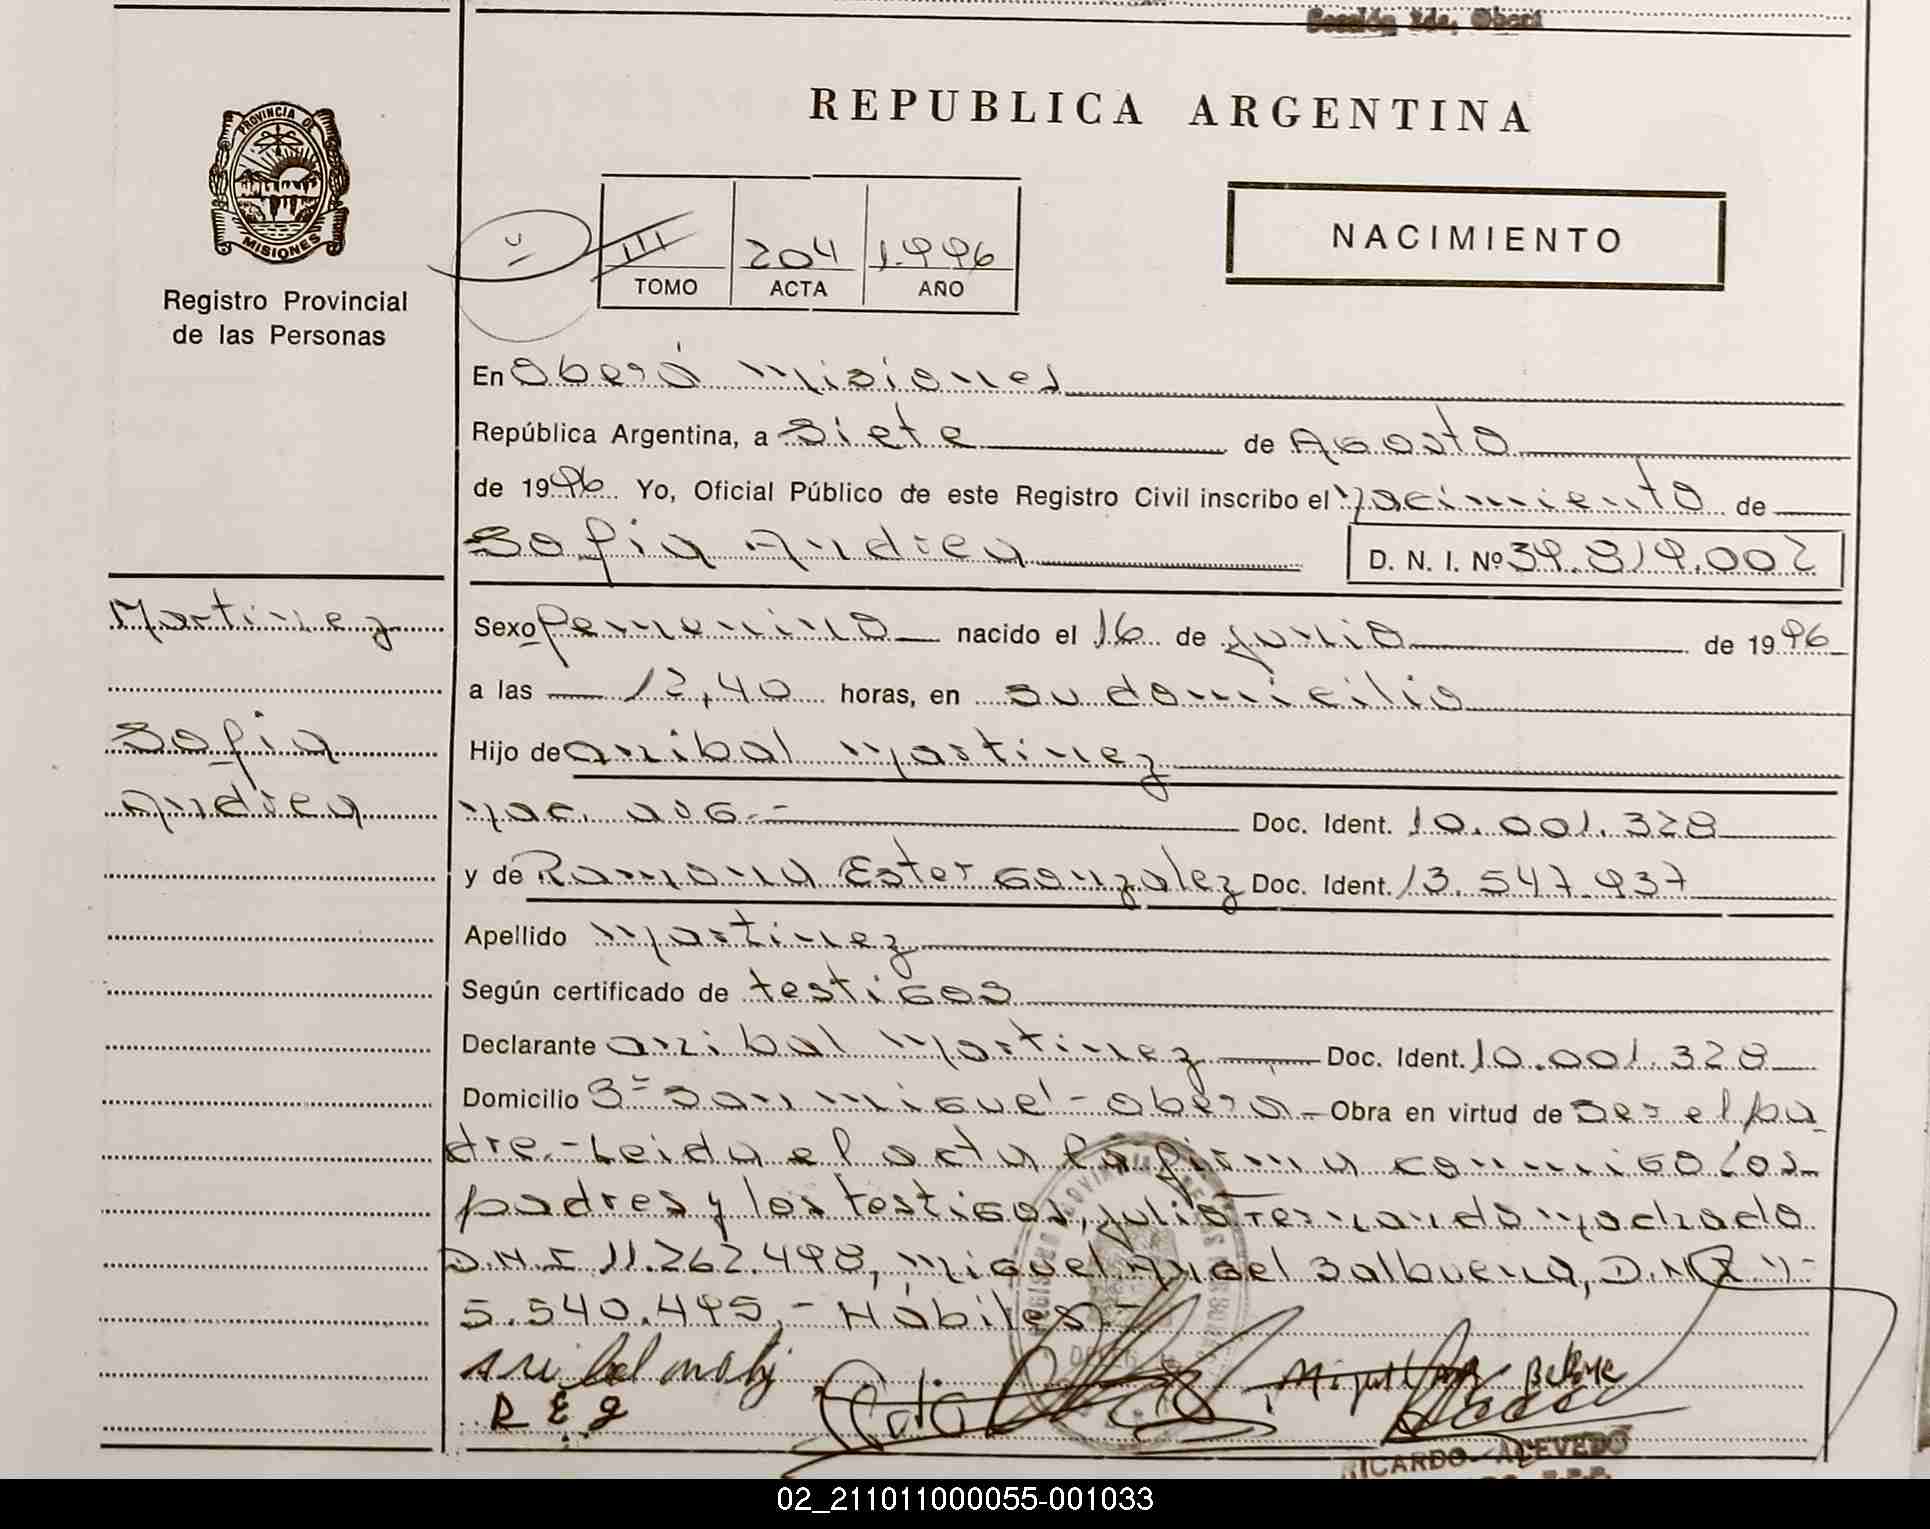 Sección 2da, Oberá
REPUBLICA ARGENTINA
PROVINCIA DE
MISIONES
Registro Provincial
de las Personas
III 204 1.996
TOMO ACTA AÑO
NACIMIENTO
En Oberá Misiones
República Argentina, a Siete de Agosto
de 1996 Yo, Oficial Público de este Registro Civil inscribo el Nacimiento de
Sofia Andrea D. N. I. Nº 39.819.002
Martinez
Sexo femenino nacido el 16 de Julio de 1996
a las 12,40 horas, en su domicilio
Sofia
Hijo de Anibal Martinez
Andrea
Nac. Arg.- Doc. Ident. 10.001.328
y de Ramona Ester Gonzalez Doc. Ident. 13.547.937
Apellido Martinez
Según certificado de testigos
Declarante Anibal Martinez Doc. Ident. 10.001.328
Domicilio Bº San Miguel - Oberá - Obra en virtud de Ser el pa
dre.- Leida el acta la firma conmigo los
padres y los testigos, Julio Fernando Machado
D.N.I 11.262.498, Miguel Angel Balbuena, D.N.I M-
5.540.495,- Hábiles.-
R E G
RICARDO ACEVEDO
02_211011000055-001033